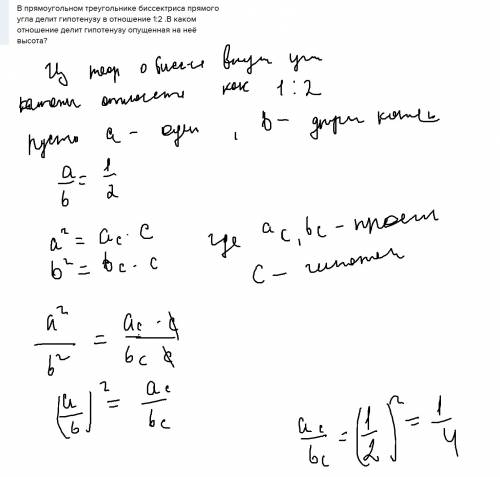 В прямоугольном треугольнике биссектриса прямого
угла делит гипотенузу в отношение 1:2 .В каком
отношение делит гипотенузу опущенная на неё
высота?
Из теор о биссе внутр уг
катеты относятс как 1:2
пусть a - один , b - другой катеть
a/b = 1/2
a² = a_c · c
b² = b_c · c
где a_c, b_c - проекц
c - гипотен
a²/b² = a_c · c / b_c c
(a/b)² = a_c/b_c
a_c/b_c = (1/2)² = 1/4